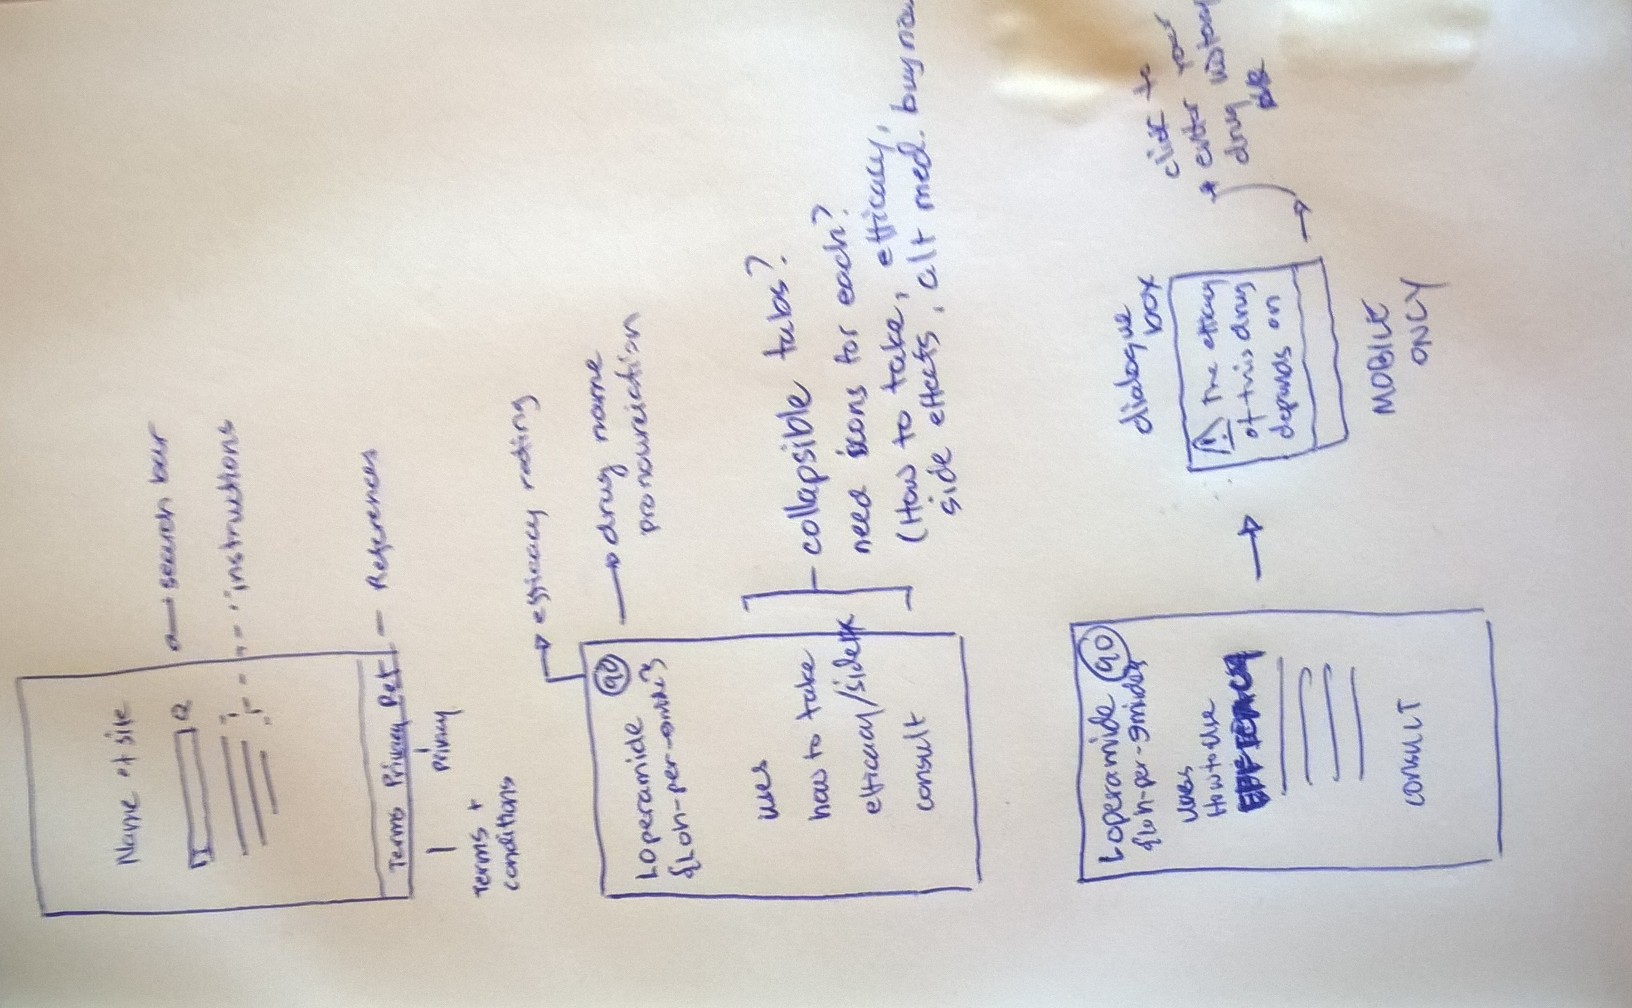 Name of site
search bar
instructions
Terms Privacy Ref
References
privacy
Terms +
conditions
efficacy rating
Loperamide 90
{Loh-per-amide}
drug name
uses
how to take
efficacy/side
consult
collapsible tabs?
need icons for each?
(How to take, efficacy,
side effects, alt med. buy now
Loperamide 90
{Loh-per-amide}
Uses
How to Use
EFFICACY
CONSULT
dialogue
box
! The efficacy
of this drug
depends on
MOBILE
ONLY
click to
enter your
drug history